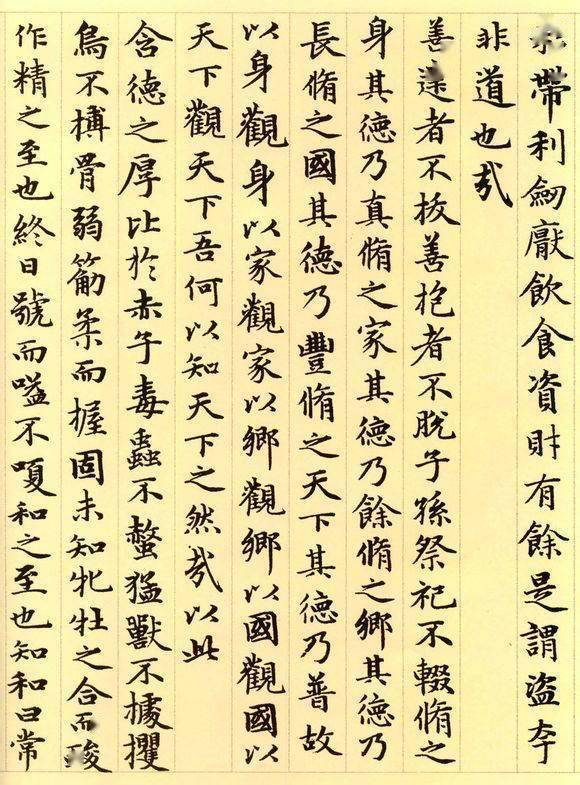 帶利劒厭飲食資財有餘是謂盜夸
非道也哉
善建者不拔善抱者不脫子孫祭祀不輟脩之
身其德乃真脩之家其德乃餘脩之鄉其德乃
長脩之國其德乃豐脩之天下其德乃普故
以身觀身以家觀家以鄉觀鄉以國觀國以
天下觀天下吾何以知天下之然哉以此
含德之厚比於赤子毒蟲不螫猛獸不據攫
鳥不搏骨弱筋柔而握固未知牝牡之合而
作精之至也終日號而嗌不嗄和之至也知和曰常